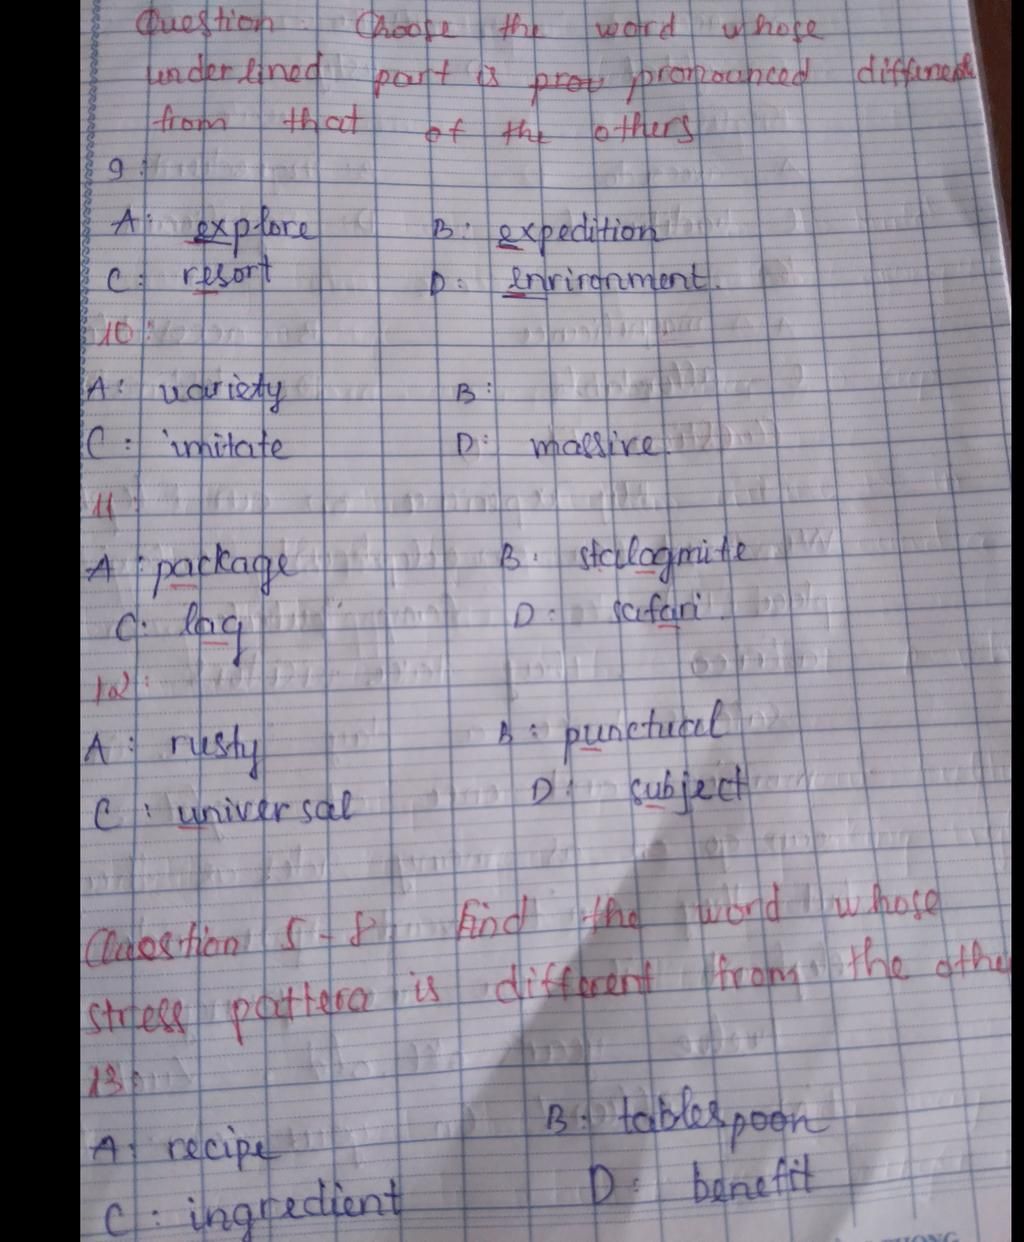 Question: Choose the word whose
underlined part is prou pronounced different
from that of the others
9:
A: explore B: expedition
C: resort D: environment.
10:
A: variety B:
C: imitate D: massive.
11
A: package B: stalagmite
C: lag D: safari.
12:
A: rusty B: punctual
C: universal D: subject
Question 5-8: Find the word whose
stress pattern is different from the othe
13:
A: recipe B: tablespoon
C: ingredient D: benefit